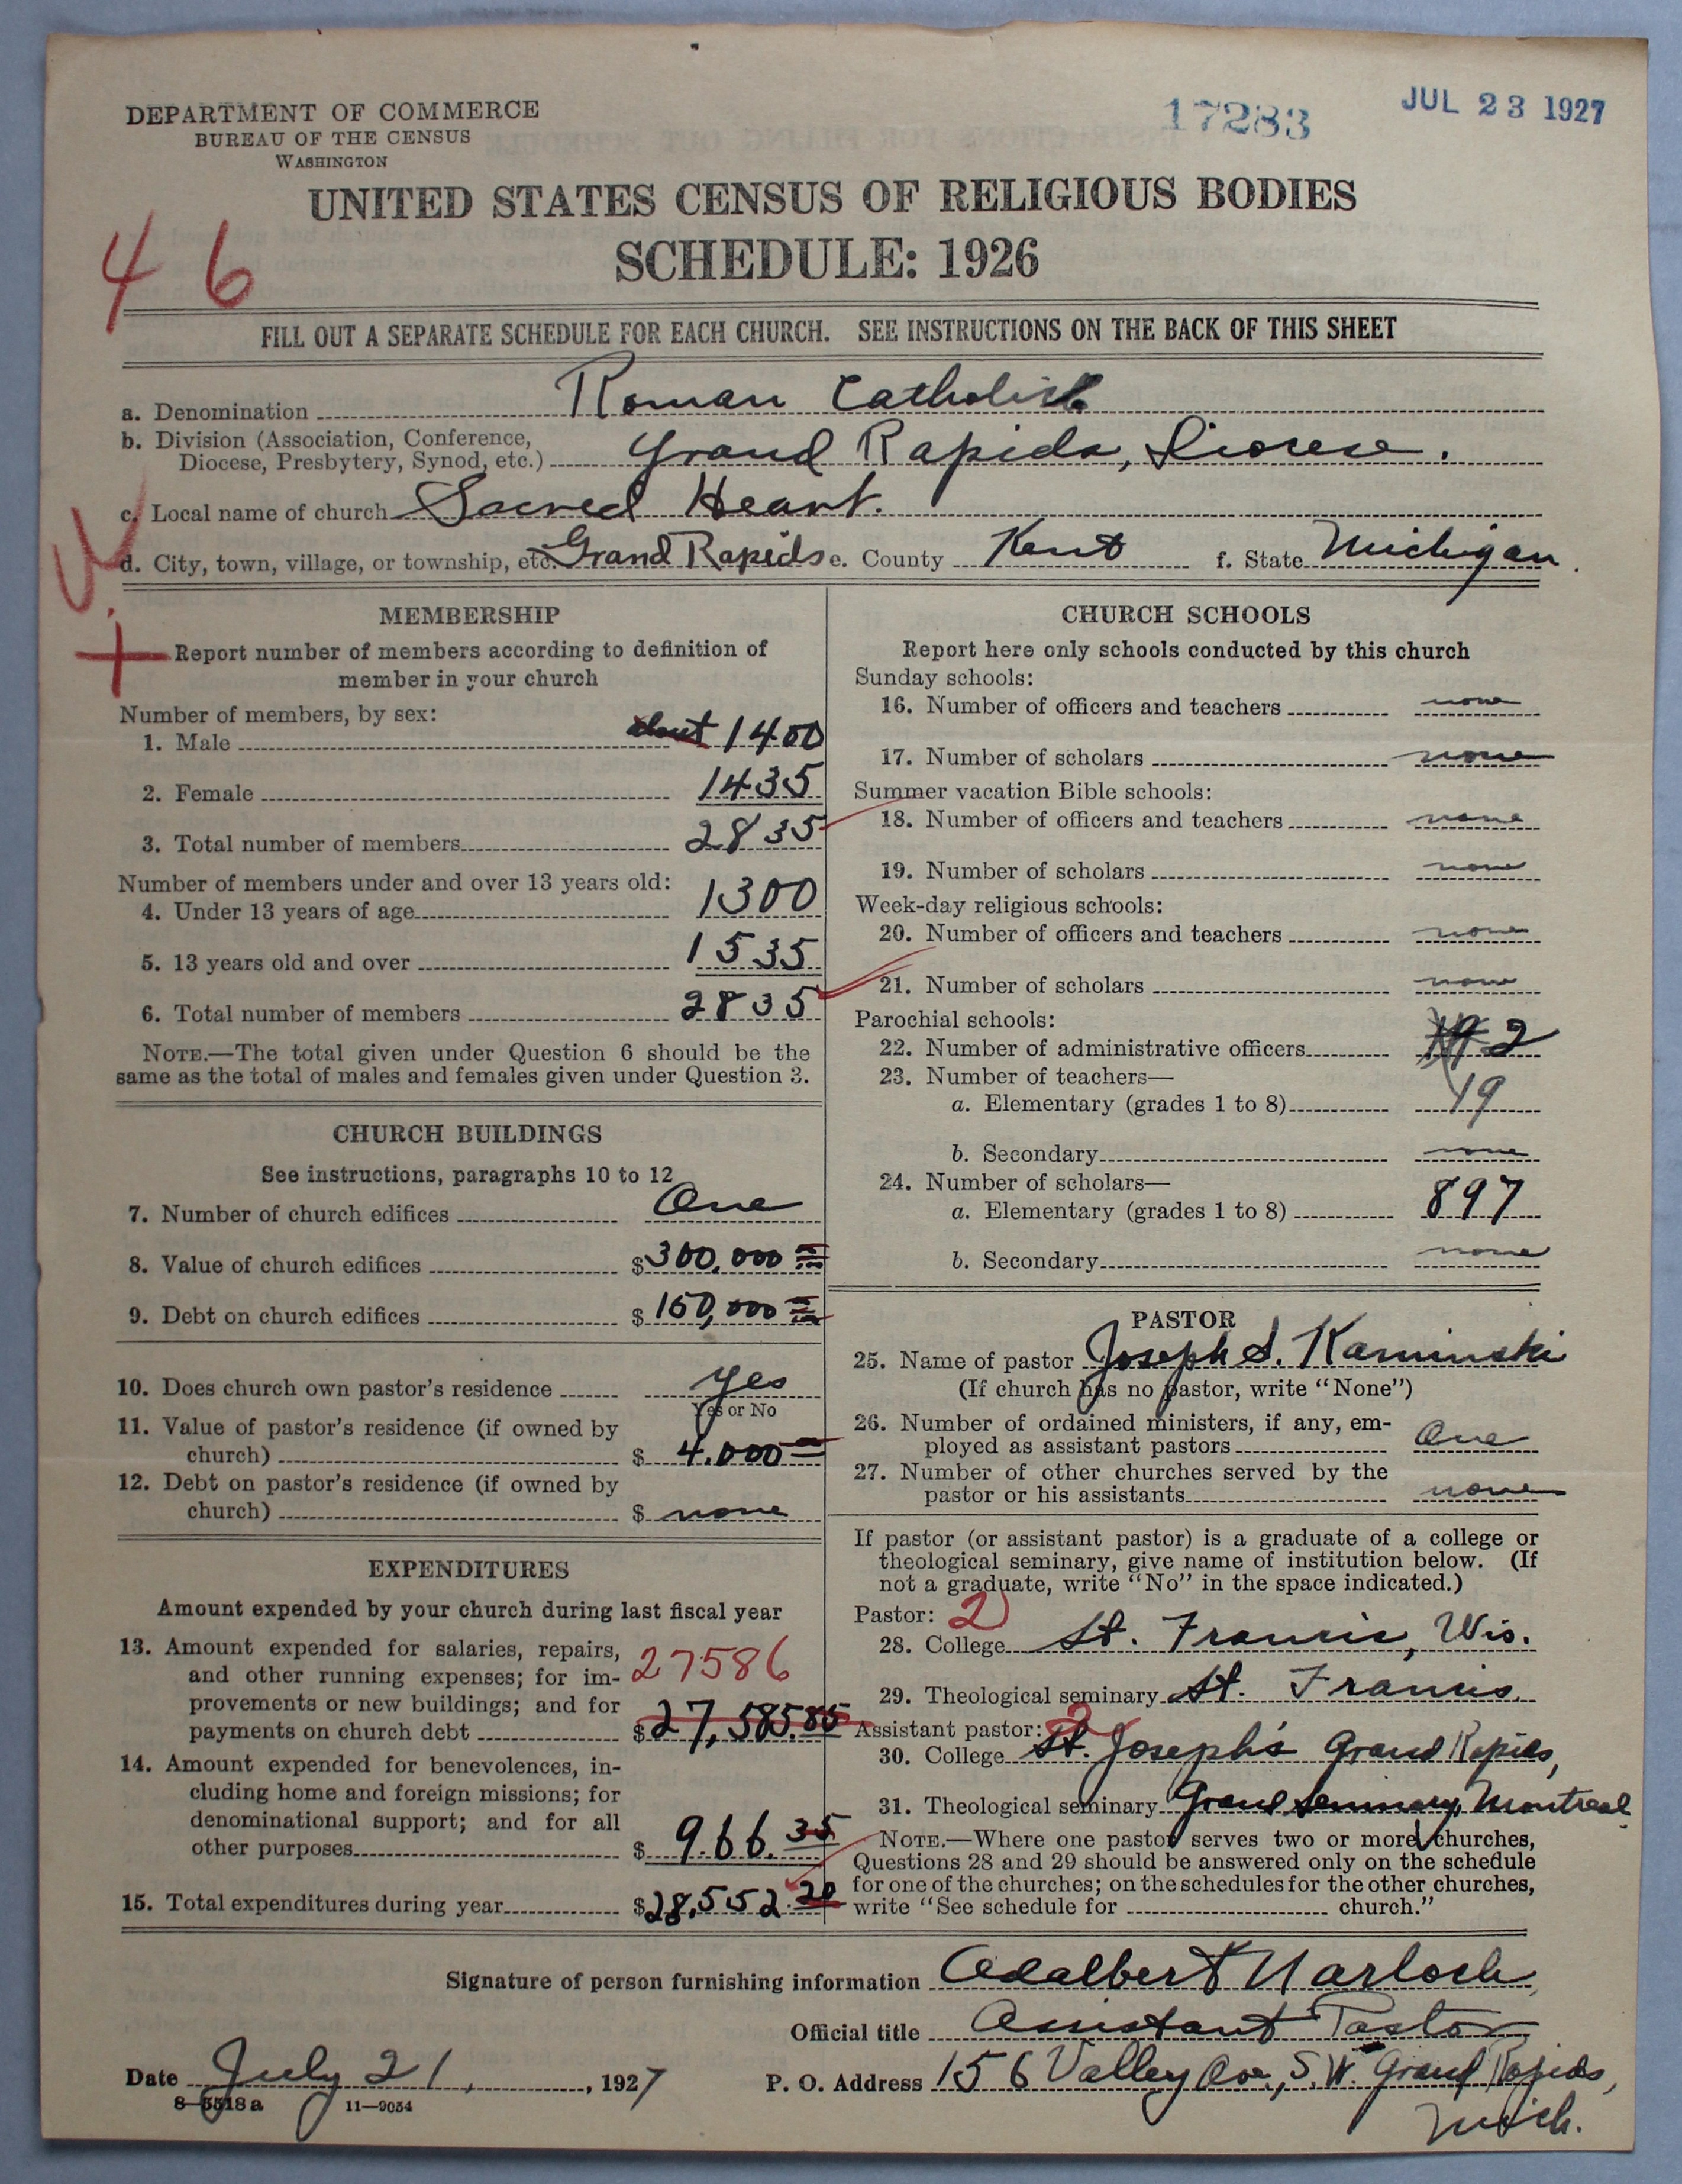 DEPARTMENT OF COMMERCE
BUREAU OF THE CENSUS
WASHINGTON
17283
JUL 23 1927
UNITED STATES CENSUS OF RELIGIOUS BODIES
SCHEDULE: 1926
46
FILL OUT A SEPARATE SCHEDULE FOR EACH CHURCH. SEE INSTRUCTIONS ON THE BACK OF THIS SHEET
a. Denomination Roman Catholic
b. Division (Association, Conference,
Diocese, Presbytery, Synod, etc.) Grand Rapids, Diocese.
c. Local name of church Sacred Heart.
d. City, town, village, or township, etc. Grand Rapids e. County Kent f. State Michigan.
MEMBERSHIP
Report number of members according to definition of
member in your church
Number of members, by sex:
1. Male about 1400
2. Female 1435
3. Total number of members 2835
Number of members under and over 13 years old:
4. Under 13 years of age 1300
5. 13 years old and over 1535
6. Total number of members 2835
NOTE.—The total given under Question 6 should be the
same as the total of males and females given under Question 3.
CHURCH BUILDINGS
See instructions, paragraphs 10 to 12
7. Number of church edifices One
8. Value of church edifices $300,000
9. Debt on church edifices $150,000
10. Does church own pastor's residence yes
Yes or No
11. Value of pastor's residence (if owned by
church) $ 4.000
12. Debt on pastor's residence (if owned by
church) $ none
EXPENDITURES
Amount expended by your church during last fiscal year
13. Amount expended for salaries, repairs,
and other running expenses; for im- 27586
provements or new buildings; and for
payments on church debt $27,585.85
14. Amount expended for benevolences, in-
cluding home and foreign missions; for
denominational support; and for all
other purposes $ 966.35
15. Total expenditures during year $28,552.20
CHURCH SCHOOLS
Report here only schools conducted by this church
Sunday schools:
16. Number of officers and teachers none
17. Number of scholars none
Summer vacation Bible schools:
18. Number of officers and teachers none
19. Number of scholars none
Week-day religious schools:
20. Number of officers and teachers none
21. Number of scholars none
Parochial schools:
22. Number of administrative officers 2
23. Number of teachers—
a. Elementary (grades 1 to 8) 19
b. Secondary none
24. Number of scholars—
a. Elementary (grades 1 to 8) 897
b. Secondary none
PASTOR
25. Name of pastor Joseph S. Kaminski
(If church has no pastor, write "None")
26. Number of ordained ministers, if any, em-
ployed as assistant pastors One
27. Number of other churches served by the
pastor or his assistants none
If pastor (or assistant pastor) is a graduate of a college or
theological seminary, give name of institution below. (If
not a graduate, write "No" in the space indicated.)
Pastor: 2
28. College St. Francis, Wis.
29. Theological seminary St. Francis.
Assistant pastor: 2
30. College St. Joseph's Grand Rapids,
31. Theological seminary Grand Seminary, Montreal.
NOTE.—Where one pastor serves two or more churches,
Questions 28 and 29 should be answered only on the schedule
for one of the churches; on the schedules for the other churches,
write "See schedule for church."
Signature of person furnishing information Adalbert Narloch
Official title Assistant Pastor
Date July 21, 1927
P. O. Address 156 Valley Ave., S.W. Grand Rapids,
Mich.
8—5518a 11—9054